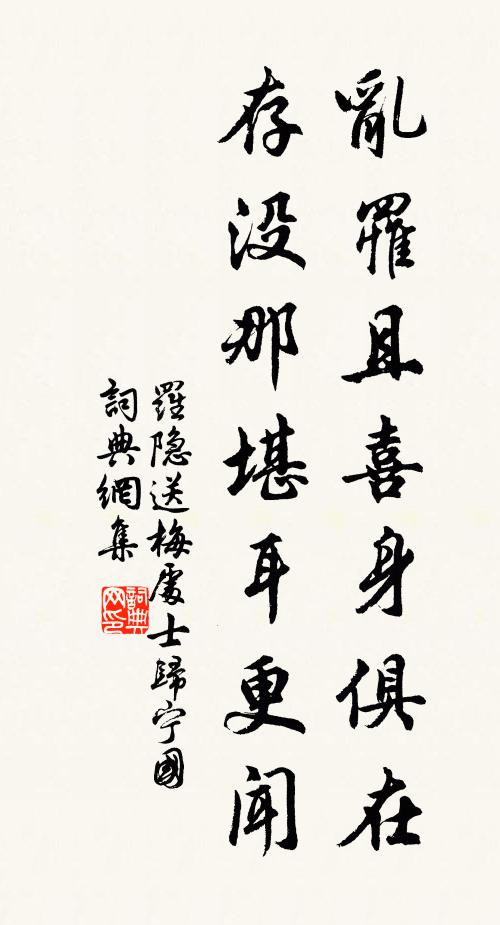 亂罹且喜身俱在
存没那堪耳更聞
羅隐送梅處士歸宁國
詞典網集
詞典
网印